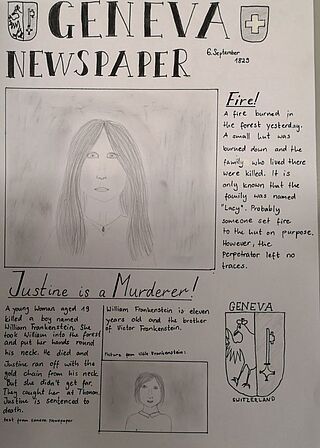 GENEVA
NEWSPAPER
6. September
1829
Fire!
A fire burned in
the forest yesterday.
A small hut was
burned down and the
family who lived there
were killed. It is
only known that the
family was named
"Lacy". Probably
someone set fire
to the hut on purpose.
However, the
Perpetrator left no
traces.
Justine is a Murderer!
A young woman aged 19
killed a boy named
William Frankenstein. She
took William into the forest
and put her hands round
his neck. He died and
Justine ran off with the
gold chain from his neck.
But she didn't get far.
They caught her at Thonon.
Justine is sentenced to
death.
text from Geneva Newspaper
William Frankenstein is eleven
years old and the brother
of Victor Frankenstein.
Picture from William Frankenstein:
GENEVA
SWITZERLAND